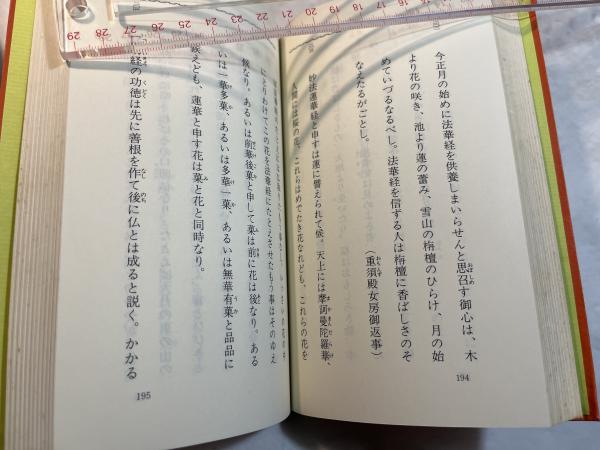 今正月の始めに法華経を供養しまいらせんと思召す御心は、木
より花の咲き、池より蓮の蕾み、雪山の栴檀のひらけ、月の始
めていづるなるべし。法華経を信ずる人は栴檀に香ばしさのそ
なえたるがごとし。
（重須殿女房御返事）
妙法蓮華経と申すは蓮に譬えられて候。天上には摩訶曼陀羅華、
人間には桜の花、これらはめでたき花なれども、これらの花を
にとりわけてこの花を法華経にたとえさせたもう事はそのゆえ
候なり。あるいは前華後菓と申して菓は前に花は後なり。ある
いは一華多菓、あるいは多華一菓、あるいは無華有菓と品品に
候えども、蓮華と申す花は菓と花と同時なり。
経の功徳は先に善根を作て後に仏とは成ると説く。かかる
194
195
29 28 27 26 25 24 23 22 21 20 19 18